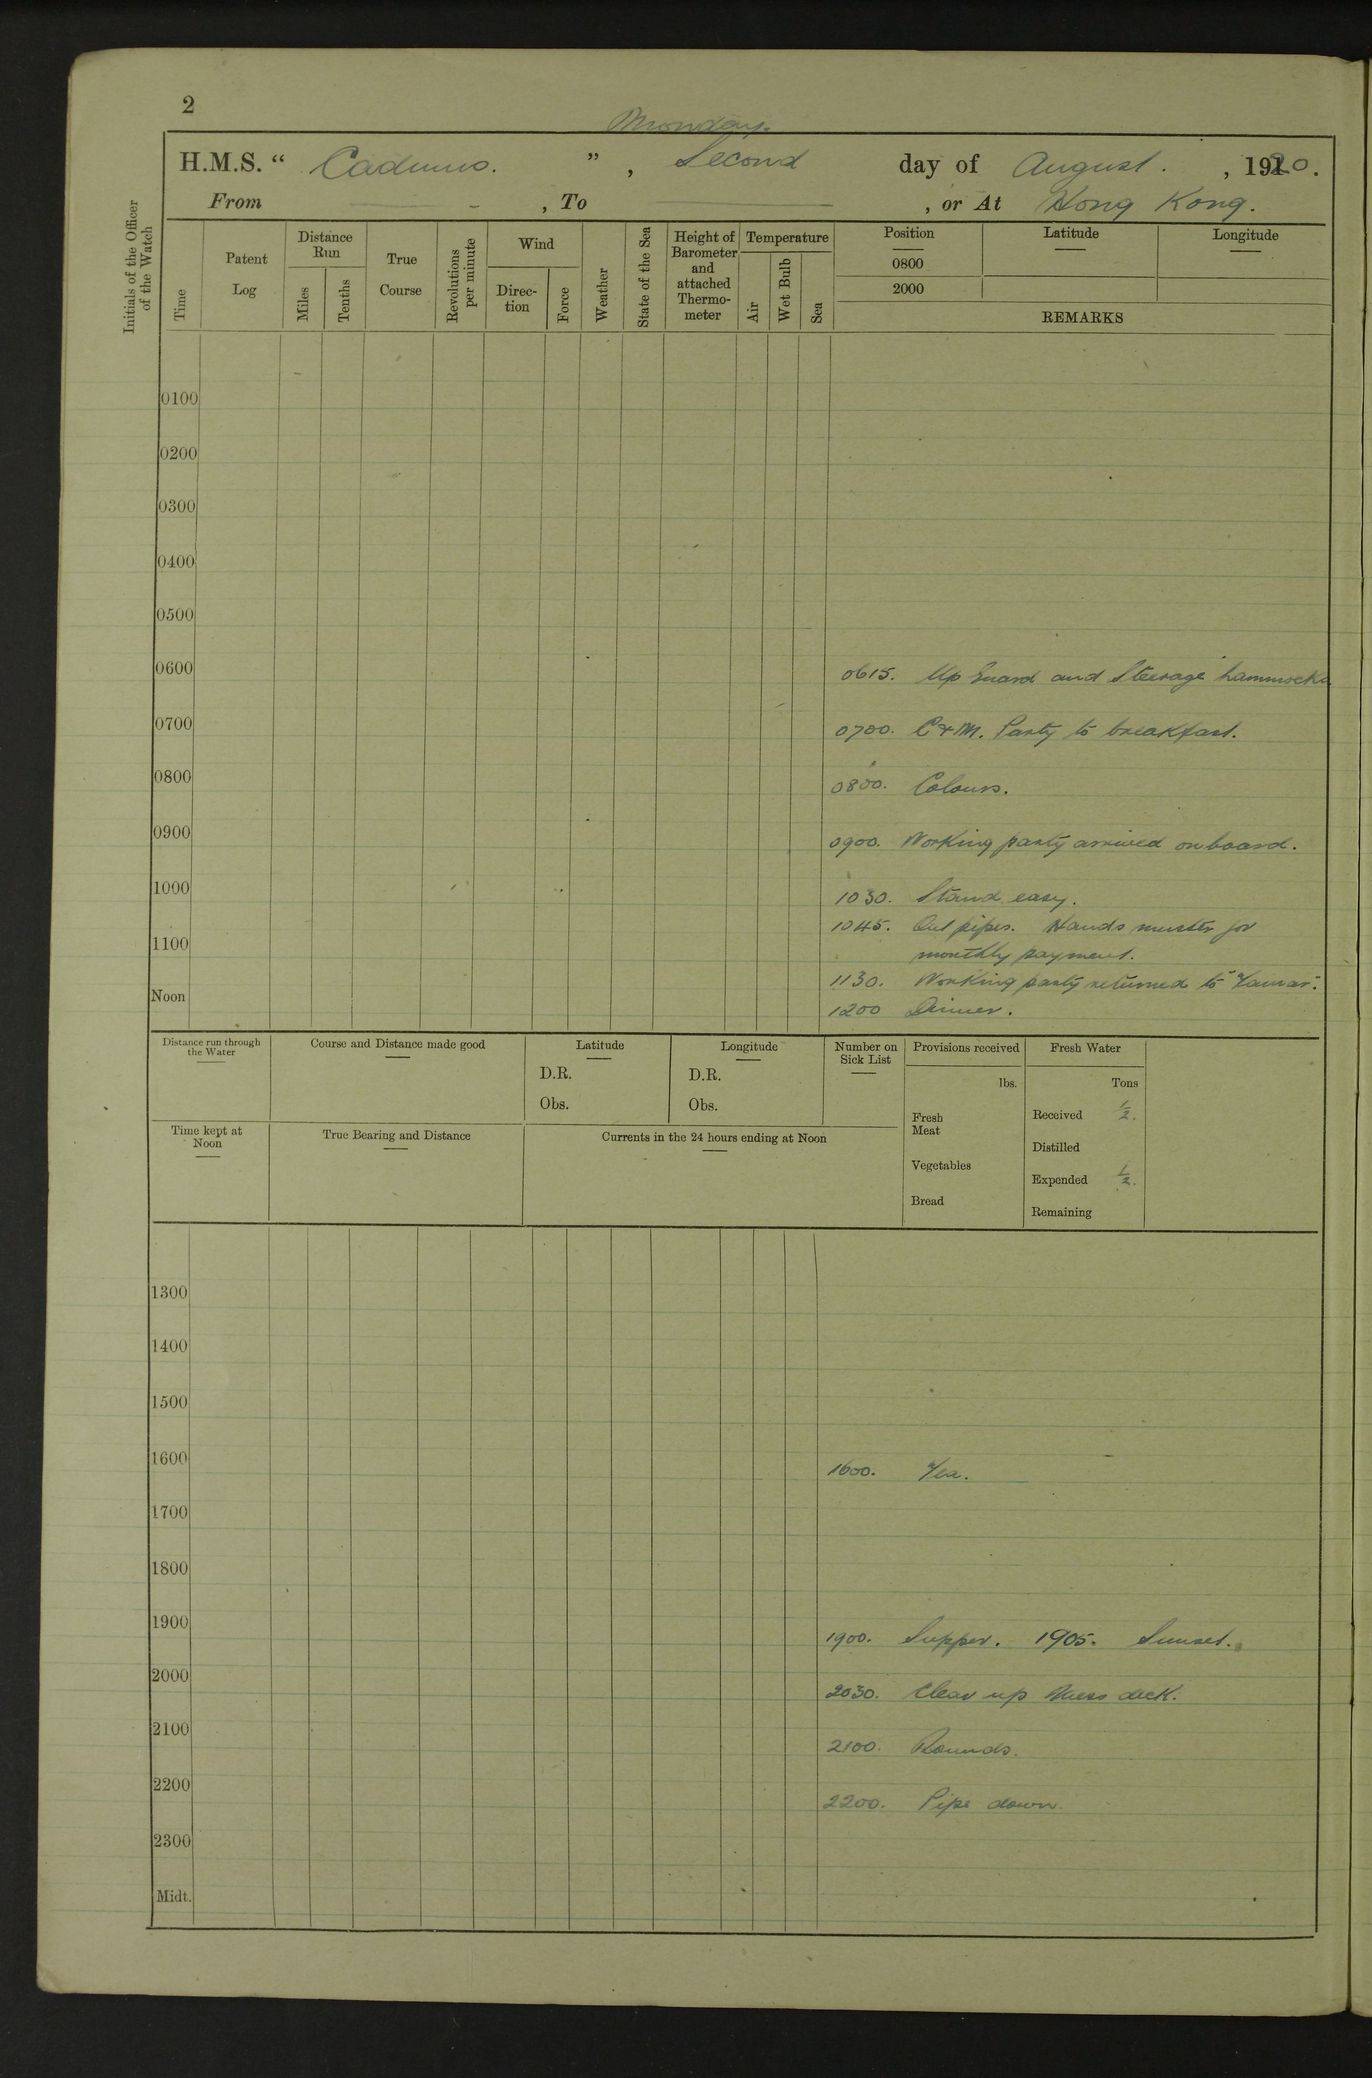 2
Monday.
H.M.S. “ Cadmus. ” , Second day of August. , 1920.
From - , To , or At Hong Kong.
Initials of the Officer of the Watch
Time
Patent Log
Distance Run
Miles
Tenths
True Course
Revolutions per minute
Wind
Direc-tion
Force
Weather
State of the Sea
Height of Barometer and attached Thermo-meter
Temperature
Air
Wet Bulb
Sea
Position
0800
2000
Latitude
Longitude
REMARKS
0100
0200
0300
0400
0500
0600
0615. Up Guard and Steerage hammocks
0700
0700. C & M. Party to breakfast.
0800
0800. Colours.
0900
0900. Working party arrived on board.
1000
1030. Stand easy.
1045. Out pipes. Hands muster for
1100
monthly payment.
1130. Working party returned to "Tamar".
Noon
1200 Dinner.
Distance run through the Water
Course and Distance made good
Latitude
D.R.
Obs.
Longitude
D.R.
Obs.
Number on Sick List
Provisions received
lbs.
Fresh Meat
Vegetables
Bread
Fresh Water
Tons
Received 1/2.
Distilled
Expended 1/2.
Remaining
Time kept at Noon
True Bearing and Distance
Currents in the 24 hours ending at Noon
1300
1400
1500
1600
1600. Tea.
1700
1800
1900
1900. Supper. 1905. Sunset.
2000
2030. Clear up Mess deck.
2100
2100. Rounds.
2200
2200. Pipe down.
2300
Midt.